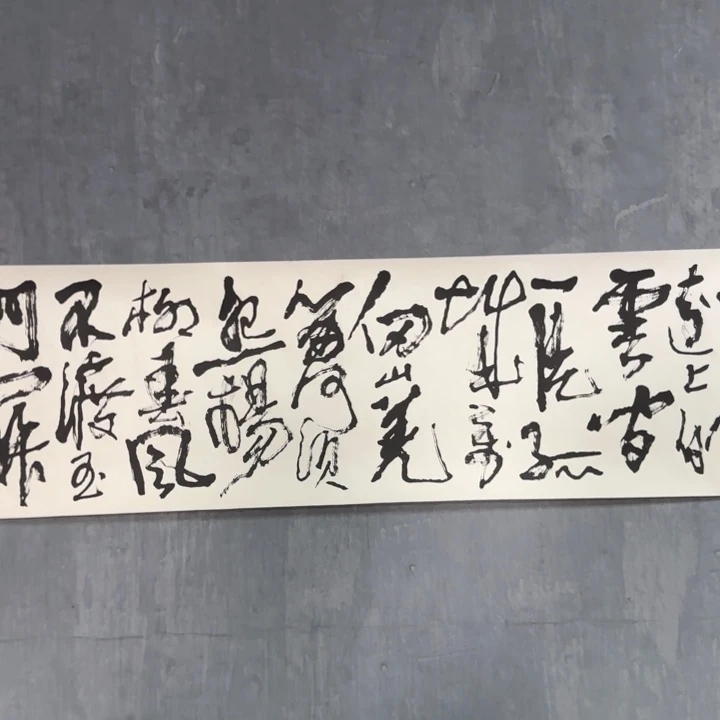 遠上白
雲間
一片孤
城萬
仞山羌
笛何須
怨楊
柳春風
不渡玉
門關